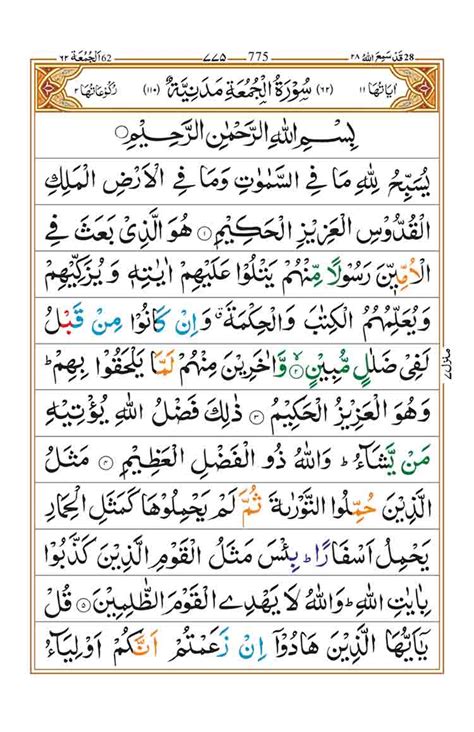 28 قَدْ سَمِعَ اللهُ ٢٨ 775 ٧٧٥ 62 اَلْجُمُعَة ٦٢
اٰيَاتُهَا ١١ (٦٢) سُوْرَةُ الْجُمُعَةِ مَدَنِيَّةٌ (١١٠) رُكُوْعَاتُهَا ٢
بِسْمِ اللهِ الرَّحْمٰنِ الرَّحِيْمِ
يُسَبِّحُ لِلّٰهِ مَا فِي السَّمٰوٰتِ وَمَا فِي الْاَرْضِ الْمَلِكِ
الْقُدُّوْسِ الْعَزِيْزِ الْحَكِيْمِ ١ هُوَ الَّذِيْ بَعَثَ فِي
الْاُمِّيّٖنَ رَسُوْلًا مِّنْهُمْ يَتْلُوْا عَلَيْهِمْ اٰيٰتِهٖ وَيُزَكِّيْهِمْ
وَيُعَلِّمُهُمُ الْكِتٰبَ وَالْحِكْمَةَ ۗ وَاِنْ كَانُوْا مِنْ قَبْلُ
لَفِيْ ضَلٰلٍ مُّبِيْنٍ ٢ وَّاٰخَرِيْنَ مِنْهُمْ لَمَّا يَلْحَقُوْا بِهِمْ ؕ
وَهُوَ الْعَزِيْزُ الْحَكِيْمُ ٣ ذٰلِكَ فَضْلُ اللهِ يُؤْتِيْهِ
مَنْ يَّشَآءُ ؕ وَاللهُ ذُو الْفَضْلِ الْعَظِيْمِ ٤ مَثَلُ
الَّذِيْنَ حُمِّلُوا التَّوْرٰىةَ ثُمَّ لَمْ يَحْمِلُوْهَا كَمَثَلِ الْحِمَارِ
يَحْمِلُ اَسْفَارًا ؕ بِئْسَ مَثَلُ الْقَوْمِ الَّذِيْنَ كَذَّبُوْا
بِاٰيٰتِ اللهِ ؕ وَاللهُ لَا يَهْدِي الْقَوْمَ الظّٰلِمِيْنَ ٥ قُلْ
يٰۤاَيُّهَا الَّذِيْنَ هَادُوْۤا اِنْ زَعَمْتُمْ اَنَّكُمْ اَوْلِيَآءُ
منزل ٧